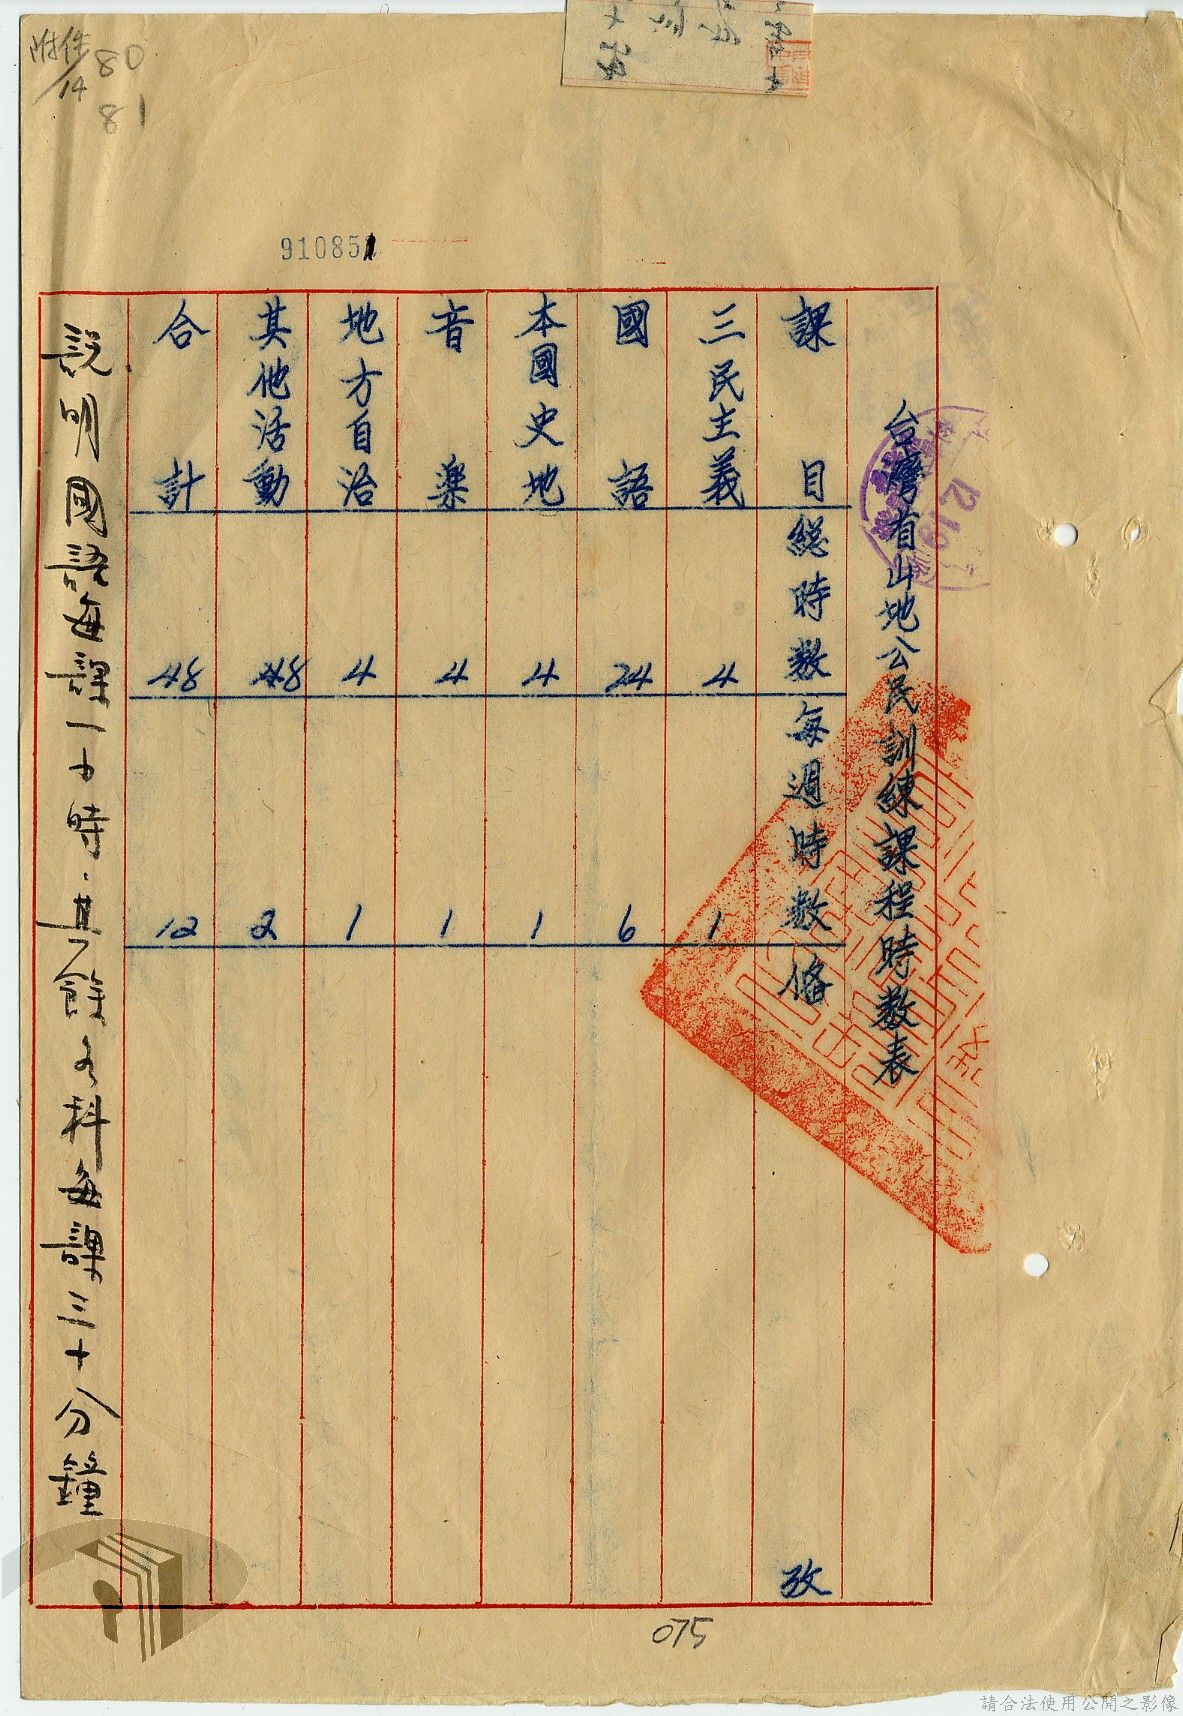 附件
14
80
81
910851
台灣省山地公民訓練課程時数表
課目 総時数 每週時数 俻攷
三民主義 4 1
國語 24 6
本國史地 4 1
音楽 4 1
地方自治 4 1
其他活動 48 2
合計 48 12
説明國語每課一小時．其餘各科每課三十分鐘
075
請合法使用公開之影像